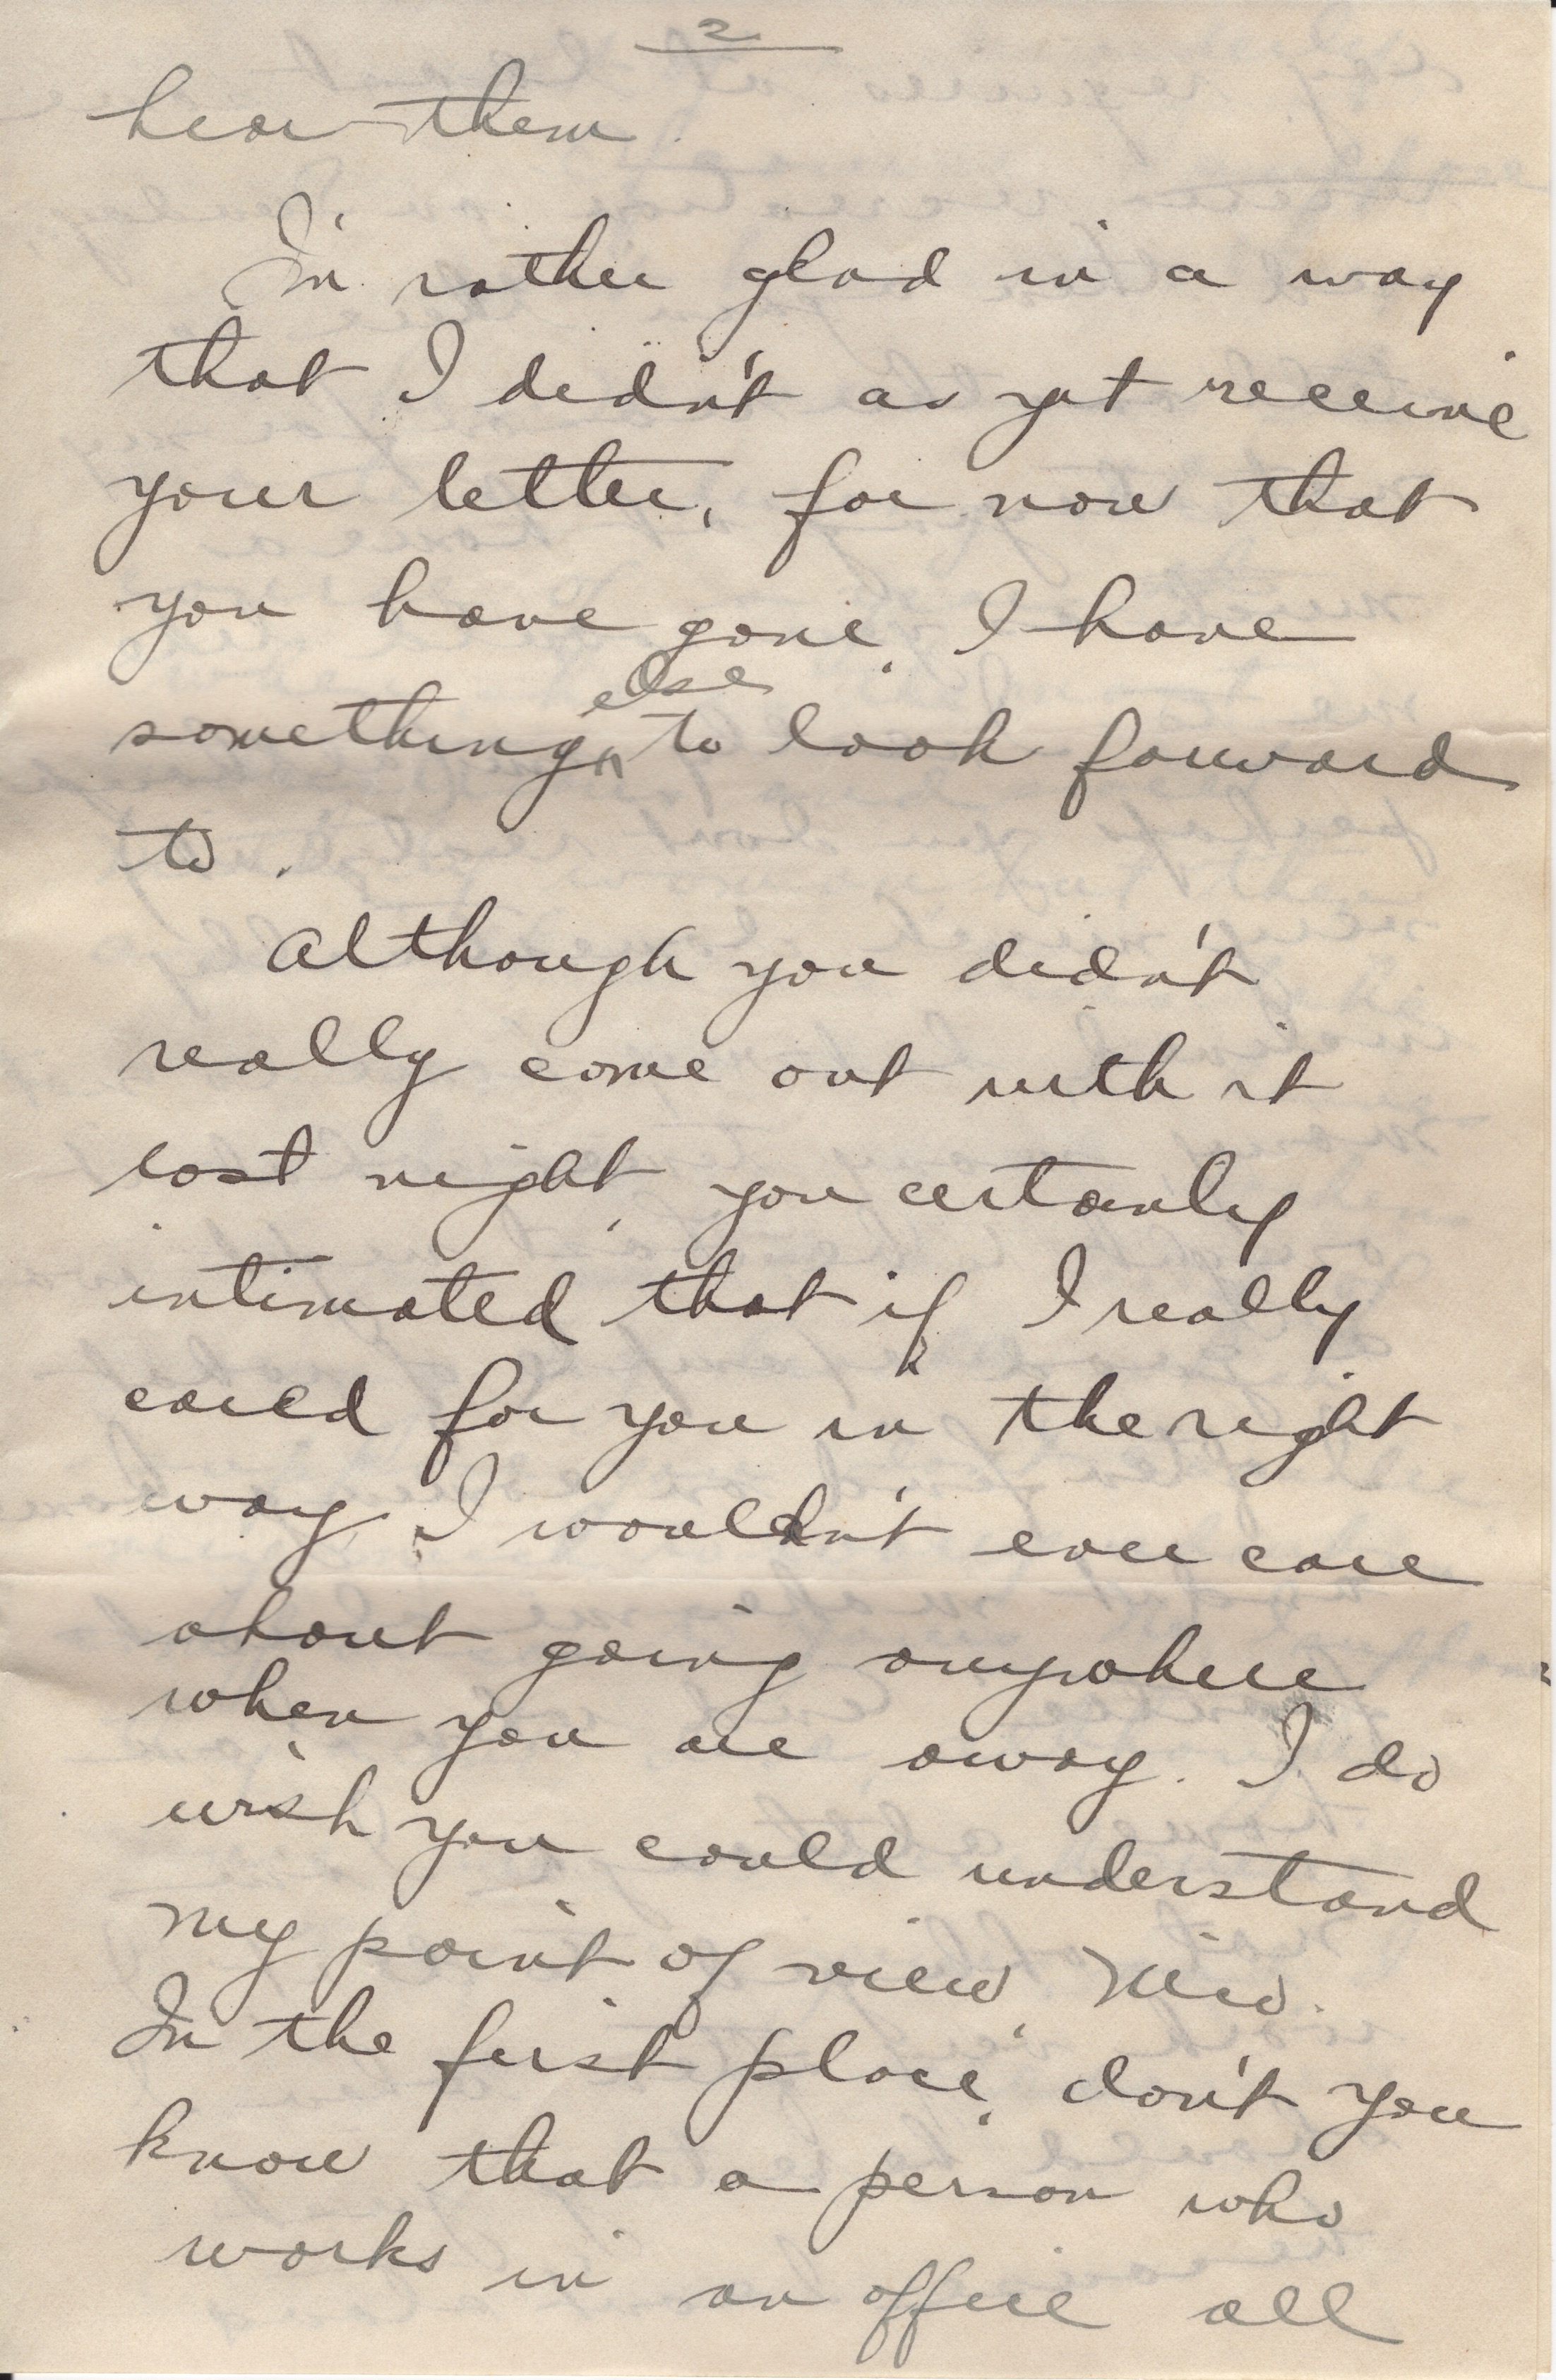 2
hear them.
I'm rather glad in a way
that I didn't as yet receive
your letter, for now that
you have gone, I have
something else to look forward
to.
Although you didn't
really come out with it
last night, you certainly
intimated that if I really
cared for you in the right
way, I wouldn't ever care
about going anywhere
when you are away. I do
wish you could understand
my point of view,
In the first place, don't you
know that a person who
works in an office all